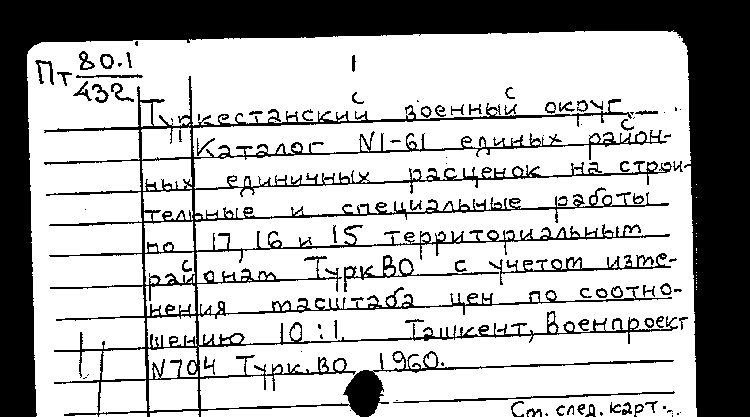 Пт 80.1
432
1
Туркестанский военный округ.
Каталог N1-61 единых район-
ных единичных расценок на строи-
тельные и специальные работы
по 17, 16 и 15 территориальным
районам ТуркВО с учетом изме-
нения масштаба цен по соотно-
шению 10:1. Ташкент, Военпроект
N704 Турк.ВО 1960.
Ч
См. след. карт.